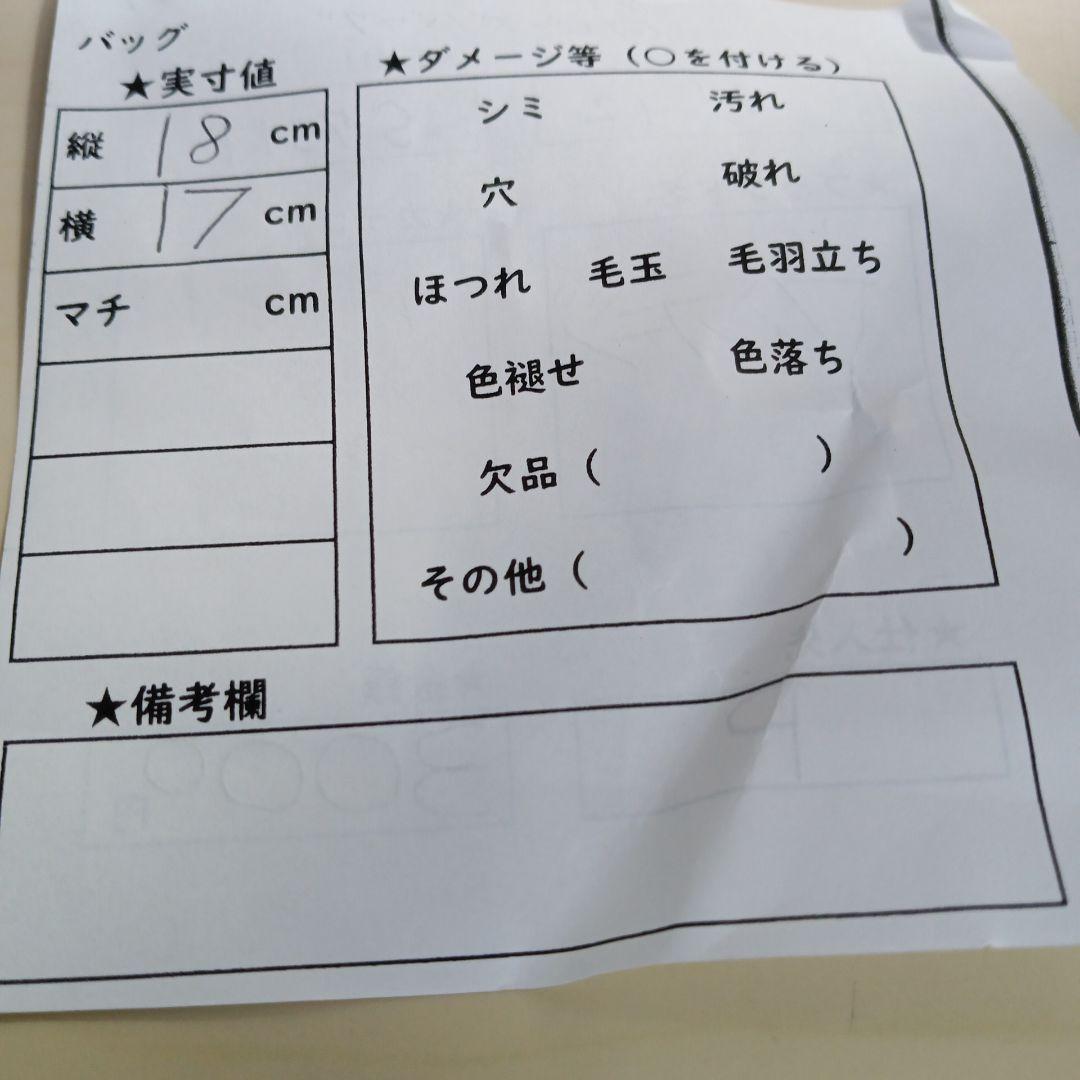 バッグ
★実寸値
縦 18 cm
横 17 cm
マチ cm
★ダメージ等（○を付ける）
シミ 汚れ
穴 破れ
ほつれ 毛玉 毛羽立ち
色褪せ 色落ち
欠品（ ）
その他（ ）
★備考欄